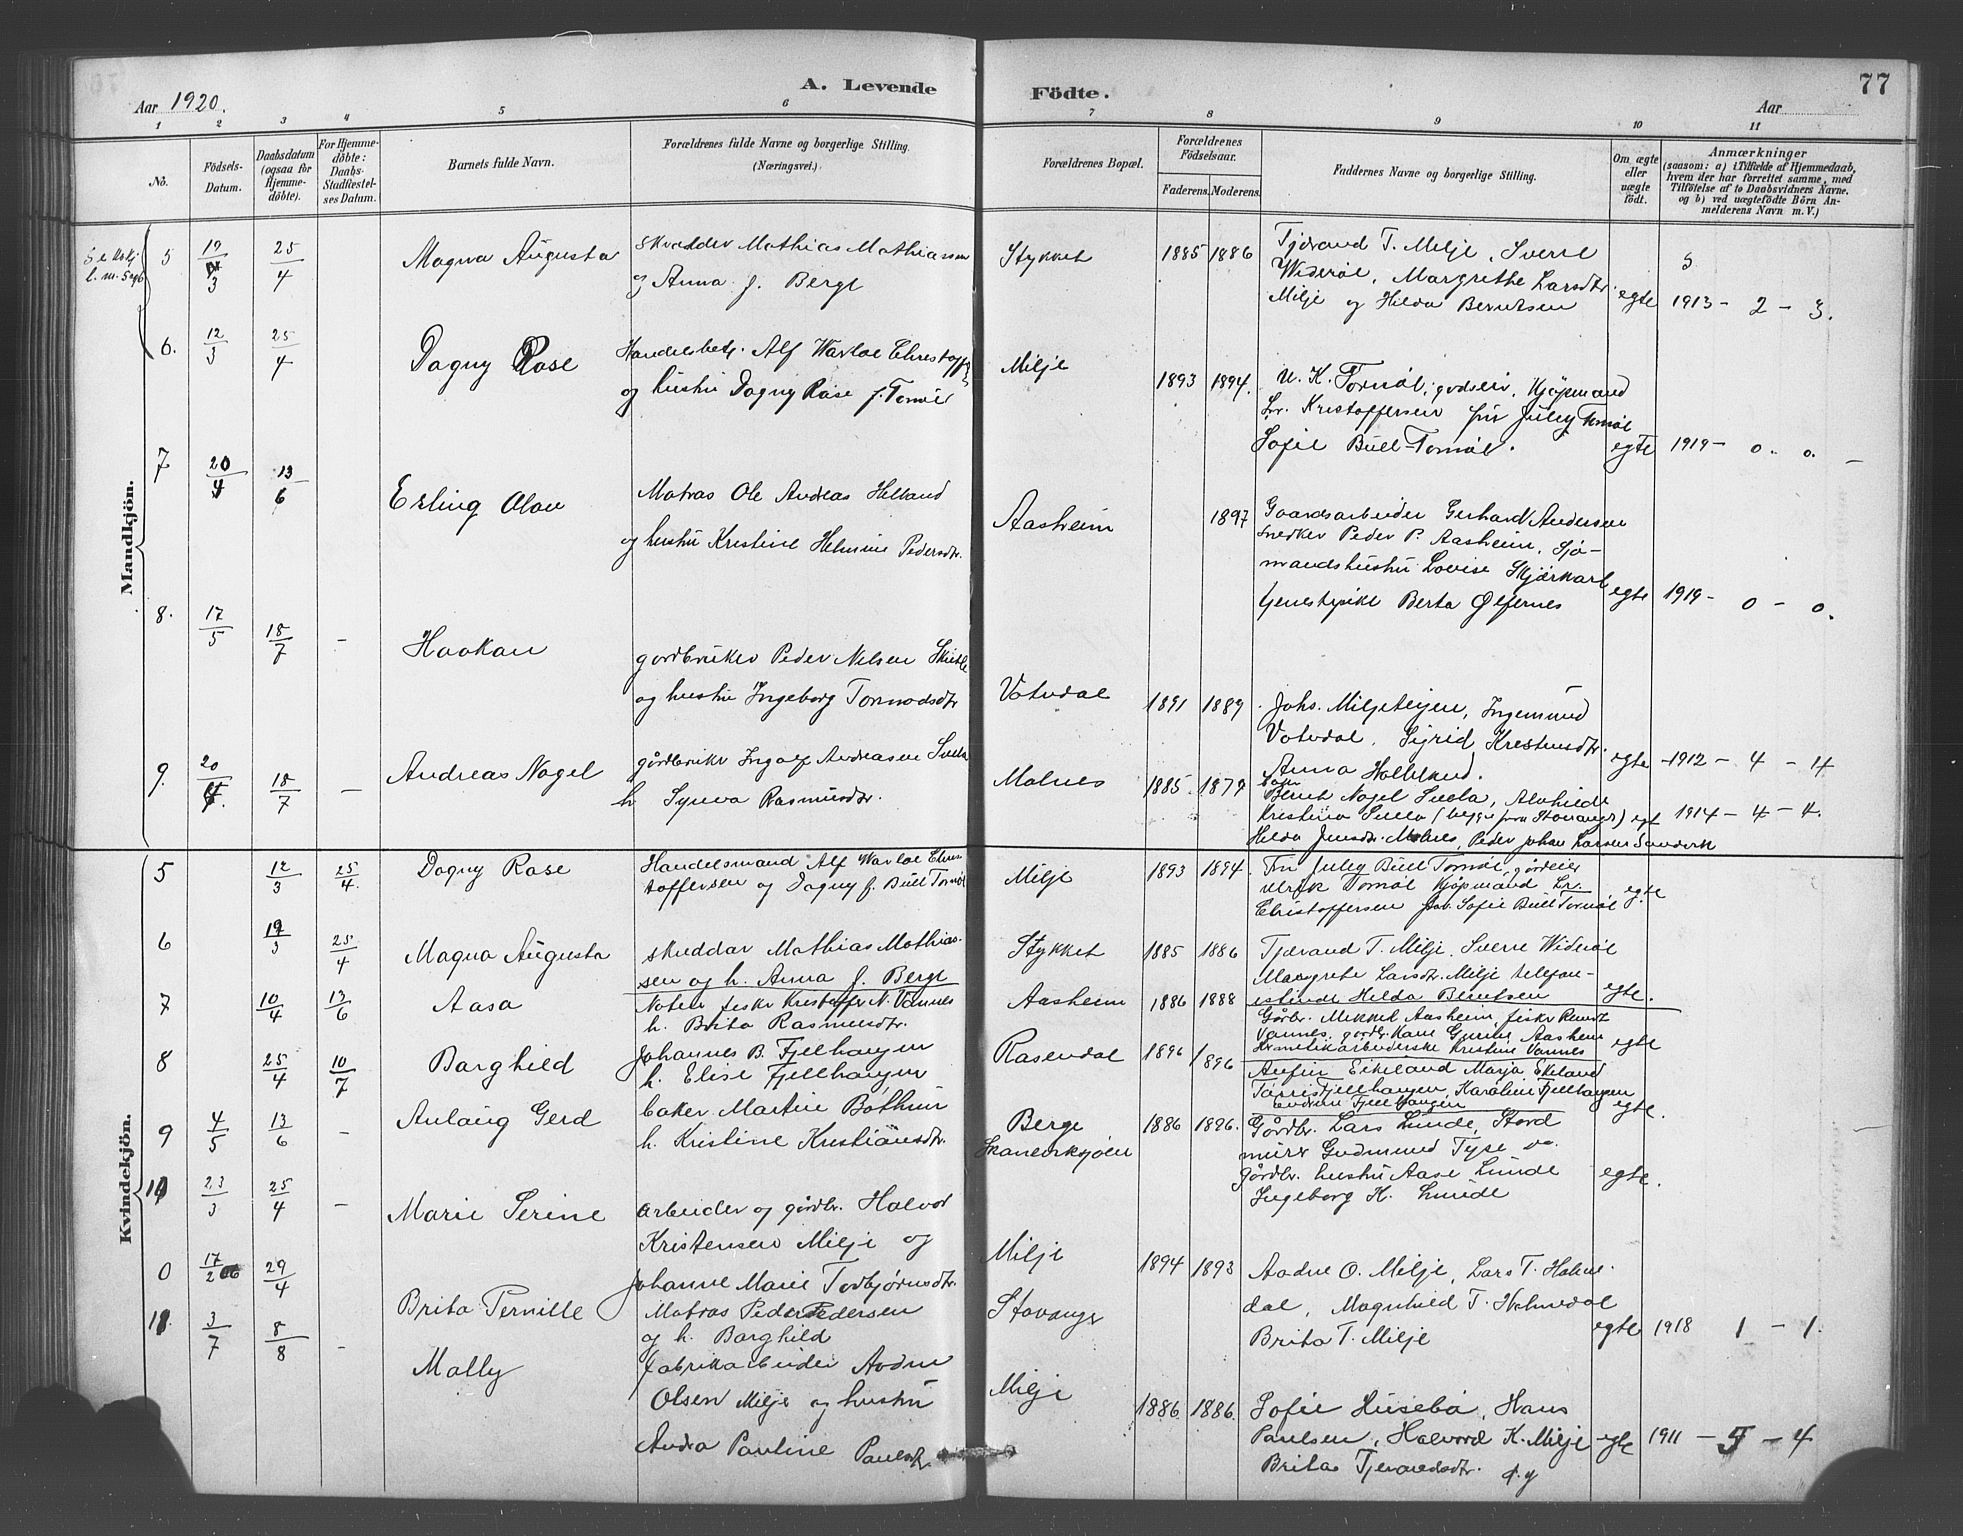 Aar 1920.
A. Levende
Födte.
77
Aar
1 2 3 4 5 6 7 8 9 10 11
No.
Födsels-
Datum.
Daabsdatum
(ogsaa for
Hjemme-
döbte).
For Hjemme-
döbte:
Daabs-
Stadfestel-
ses Datum.
Barnets fulde Navn.
Forældrenes fulde Navne og borgerlige Stilling.
(Næringsvei.)
Forældrenes Bopæl.
Forældrenes
Födselsaar.
Faderens. Moderens.
Faddernes Navne og borgerlige Stilling.
Om ægte
eller
uægte
födt.
Anmærkninger
(saasom: a) i Tilfælde af Hjemmedaab,
hvem der har forrettet samme, med
Tilföielse af to Daabsvidners Navne.
og b) ved uægtefödte Börn An-
melderens Navn m. V.)
Mandkjön.
5 19/3 25/4 Magna Augusta
Skrædder Mathias Mathiassen
og Anna f. Berge
Stykket 1885 1886
Tjerand T. Milje, Sverre
Widerøe, Margrethe Larsdtr.
Milje og Hilda Berntsen
egte 1913 - 2 - 3.
6. 12/3 25/4 Dagny Rose
Handelsbetj. Alf Warloe Christoff
og hustru Dagny Rose f. Tornøe
Milje 1893 1894.
U. K. Tornøe, godseier, Kjøpmand
Lr. Kristoffersen fru Juley Tornøe
Sofie Bull-Tornøe.
egte 1919 - 0. 0. -
7 20/4 13/6 Erling Olav
Matros Ole Andreas Helland
og hustru Kristine Helmine Pedersdtr.
Aasheim 1897
Gaardsarbeider Gerhard Andersen
Snedker Peder P. Aasheim, Sjø-
mandshustru Lovise
Berta Ølfernes
egte 1919 - 0 - 0.
8. 17/5 18/7 - Haakan
gordbruker Peder Nelsen
og hustru Ingeborg Tormodsdtr
Votvdal 1891 1889
Johs. Miljeteigen, Ingemund
Votvdal, Sigrid Krestensdtr.
Anna Holleland.
egte 1912 - 4 - 4
9. 20/4. 18/7 - Andreas Nagel
gårdbruker Ingolf Andreasen Svela
h. Synva Rasmusdtr.
Malnes 1885. 1879
Bernt Nagel Svela, Alvhilde
Kristina Svela (begge fra Stavanger) egt 1914 - 4 - 4.
Hilda Jensdtr. Malnes, Peder Johan Larsen Sandvik
Kvindekjön.
5 12/3 25/4. Dagny Rose
Handelsmand Alf Warloe Chris
toffersen og Dagny f. Bull Tornøe
Milje 1893 1894.
Fru Juley Bull Tornøe, gårdeier
Ulrik Tornøe Kjøpmand Lr.
Christoffersen frk. Sofie Bull Tornøe
egte
6 19/3 25/4 Magna Augusta
skreddar Mathias Mathias-
sen og h. Anna f. Berge
Stykket 1885 1886
Tjærand T. Milje, Sverre Widerøe
Margrete Larsdtr. Milje telefon-
istinde Hilda Berntsen
egte.
7 10/4 13/6 Aasa
Noteier fisker Kristoffer N. Vannes
h. Brita Rasmusdtr.
Aasheim 1886 1888
Gårbr. Mikkel Aasheim, fisker Knut
Vannes, gårdbr. kone Gurine Aasheim
Hermetikarbeiderske Kristine Vannes
egte
8 25/4 10/7 Barghild
Johannes B. Fjellhaugen
h. Elise Fjellhaugen
Rosendal 1896 1896
Anfin Eikeland Marja Eikeland
Tarris Fjellhaugen, Karoline Fjellhaugen
Endren Fjellhaugen
egte.
9 4/5 13/6 - Anlaug Gerd
baker Martin Bothun
h. Kristine Kristiansdtr.
Berge
Skaneviksjøen 1886 1896.
Gårdbr. Lars Lunde, Stord
murer Gudmund Tyse
gårdbr. hustru Aase Lunde
Ingeborg K. Lunde
egte.
10 23/3 25/4 - Marie Serine
arbeider og gårdbr. Halvor
Kristensen Milje og
Johanne Marie Torbjørnsdtr.
Milje 1894 1893
Aadne O. Milje, Lars T. Holme-
dal, Magnhild T. Holmedal
Brita T. Milje
egte 1918 1 - 1.
0 17/2 29/4 Brita Pernille
Matros Peder Pedersen
og h. Barghild
Stavanger
11. 3/7 8/8 - Molly
fabrikarbeider Aadne
Olsen Milje og hustru
Andrea Pauline Paulsdtr.
Milje 1886 1886.
Sofie Husebø, Hans
Paulsen, Halvord K. Milje
Brita Tjerandsdtr.
egte 1911 - 5 - 4